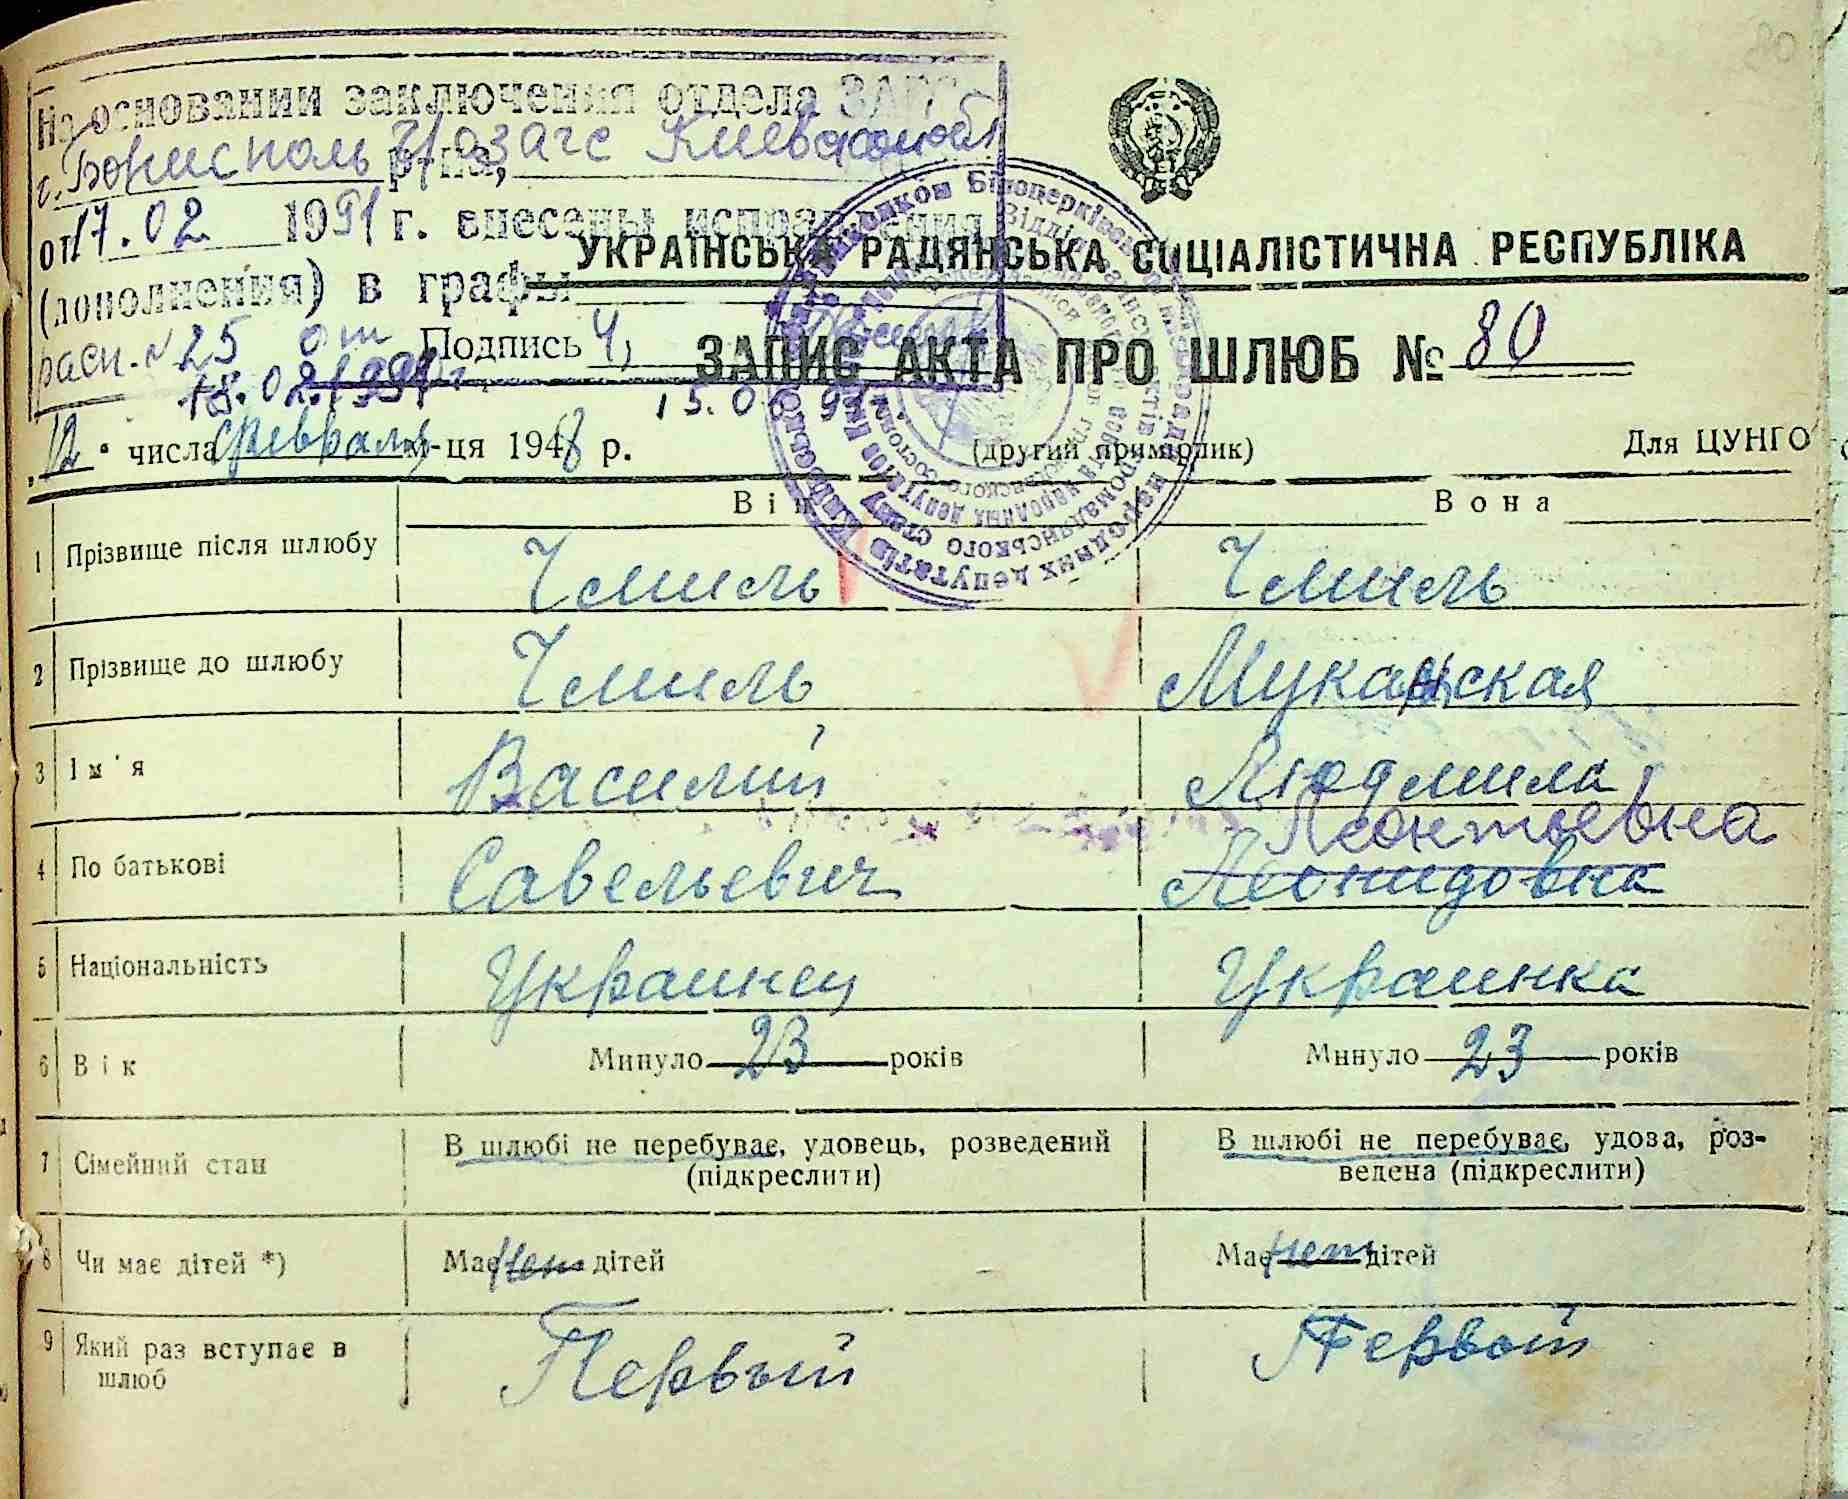 80
На основании заключения отдела ЗАГС
г. Борисполь р-на,
от 17.02 1991 г. внесены исправления
(дополнения) в графы
расп. № 25 от Подпись
18.02.1991 г.
15.06.91г.
УКРАЇНСЬКА РАДЯНСЬКА СОЦІАЛІСТИЧНА РЕСПУБЛІКА
ЗАПИС АКТА ПРО ШЛЮБ № 80
"12" числа февраля м-ця 1948 р. (другий примірник) Для ЦУНГО
Він Вона
1 Прізвище після шлюбу Чмиль Чмиль
2 Прізвище до шлюбу Чмиль Муканская
3 Ім'я Василий Людмила
Леонтьевна
4 По батькові Савельевич Леонидовна
5 Національність Украинец Украинка
6 Вік Минуло 23 років Минуло 23 років
7 Сімейний стан В шлюбі не перебуває, удовець, розведений (підкреслити) В шлюбі не перебуває, удова, роз-
ведена (підкреслити)
8 Чи має дітей *) Має нет дітей Має нет дітей
9 Який раз вступає в шлюб Первый Первый